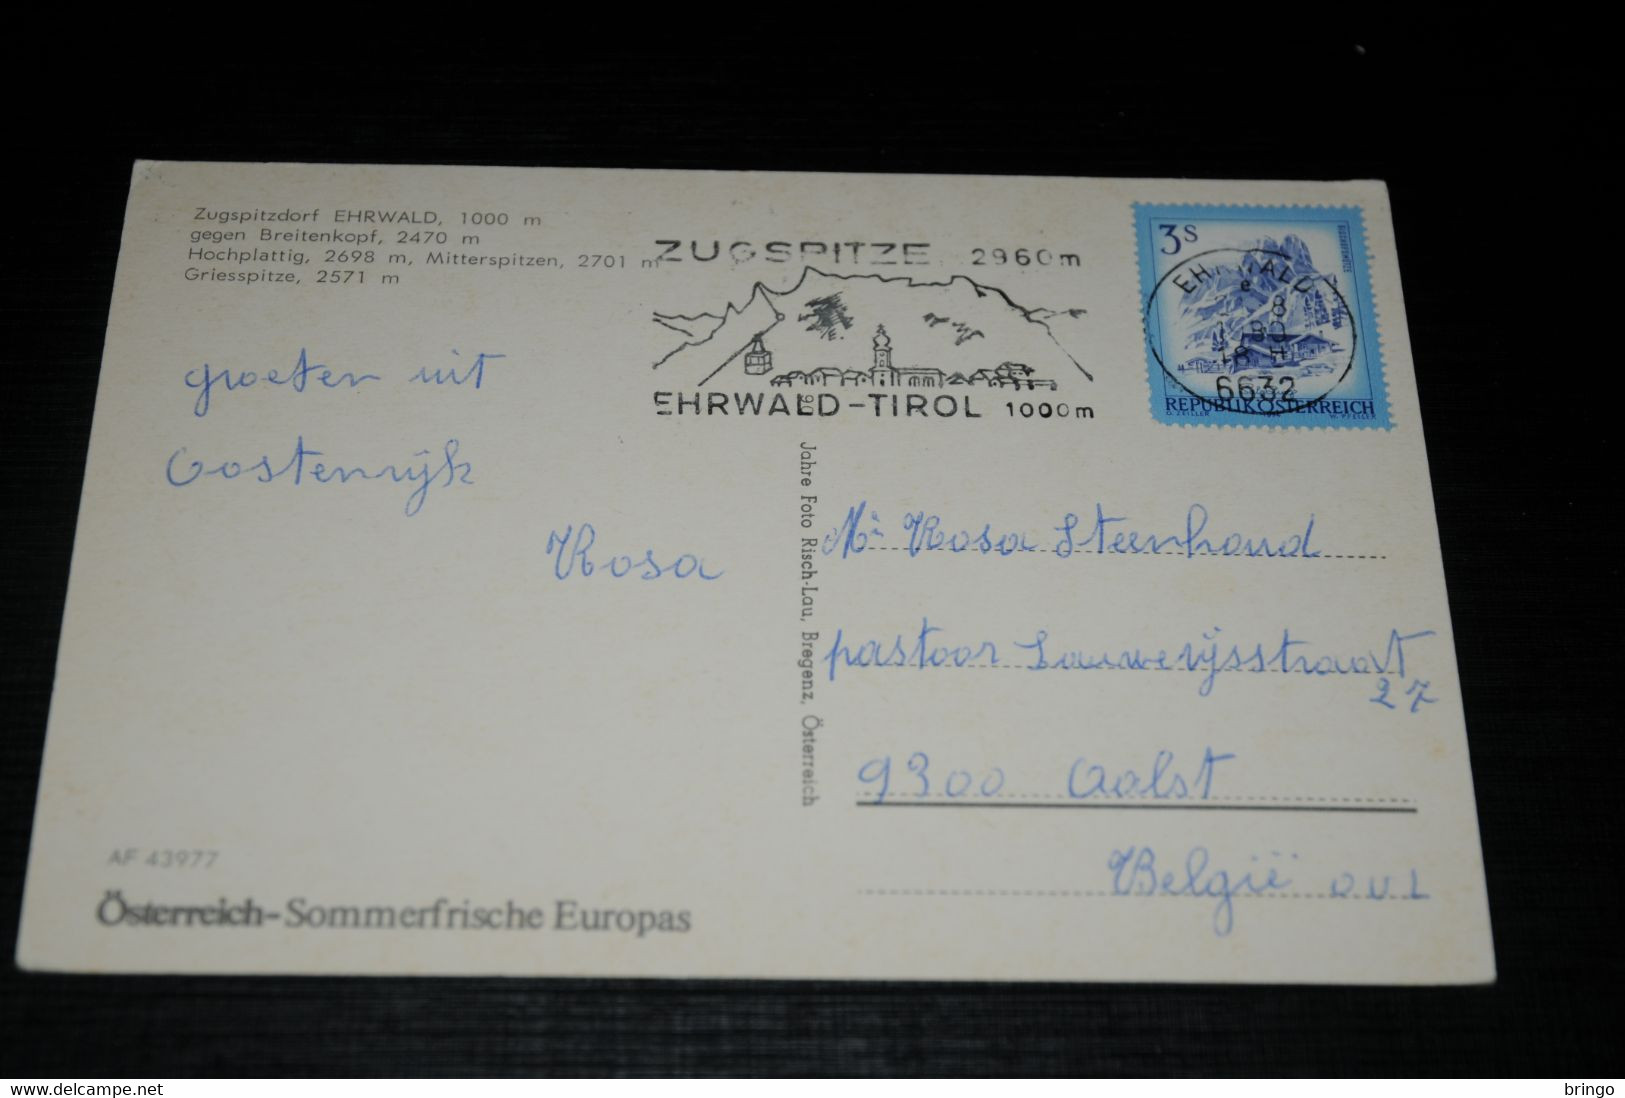 Zugspitzdorf EHRWALD, 1000 m
gegen Breitenkopf, 2470 m
Hochplattig, 2698 m, Mitterspitzen, 2701 m
Griesspitze, 2571 m
ZUGSPITZE 2960m
EHRWALD-TIROL 1000m
3 S
EHRWALD
e
8
80
18 H
6632
REPUBLIK ÖSTERREICH
O. ZEILLER
W. PFEILER
groeten uit
Oostenrijk
Rosa
Jahre Foto Risch-Lau, Bregenz, Österreich
Mr Rosa Steenhoud
pastoor Lauwerijsstraat
27
9300 Aalst
België o.v.l
AF 43977
Österreich-Sommerfrische Europas
www.delcampe.net
bringo